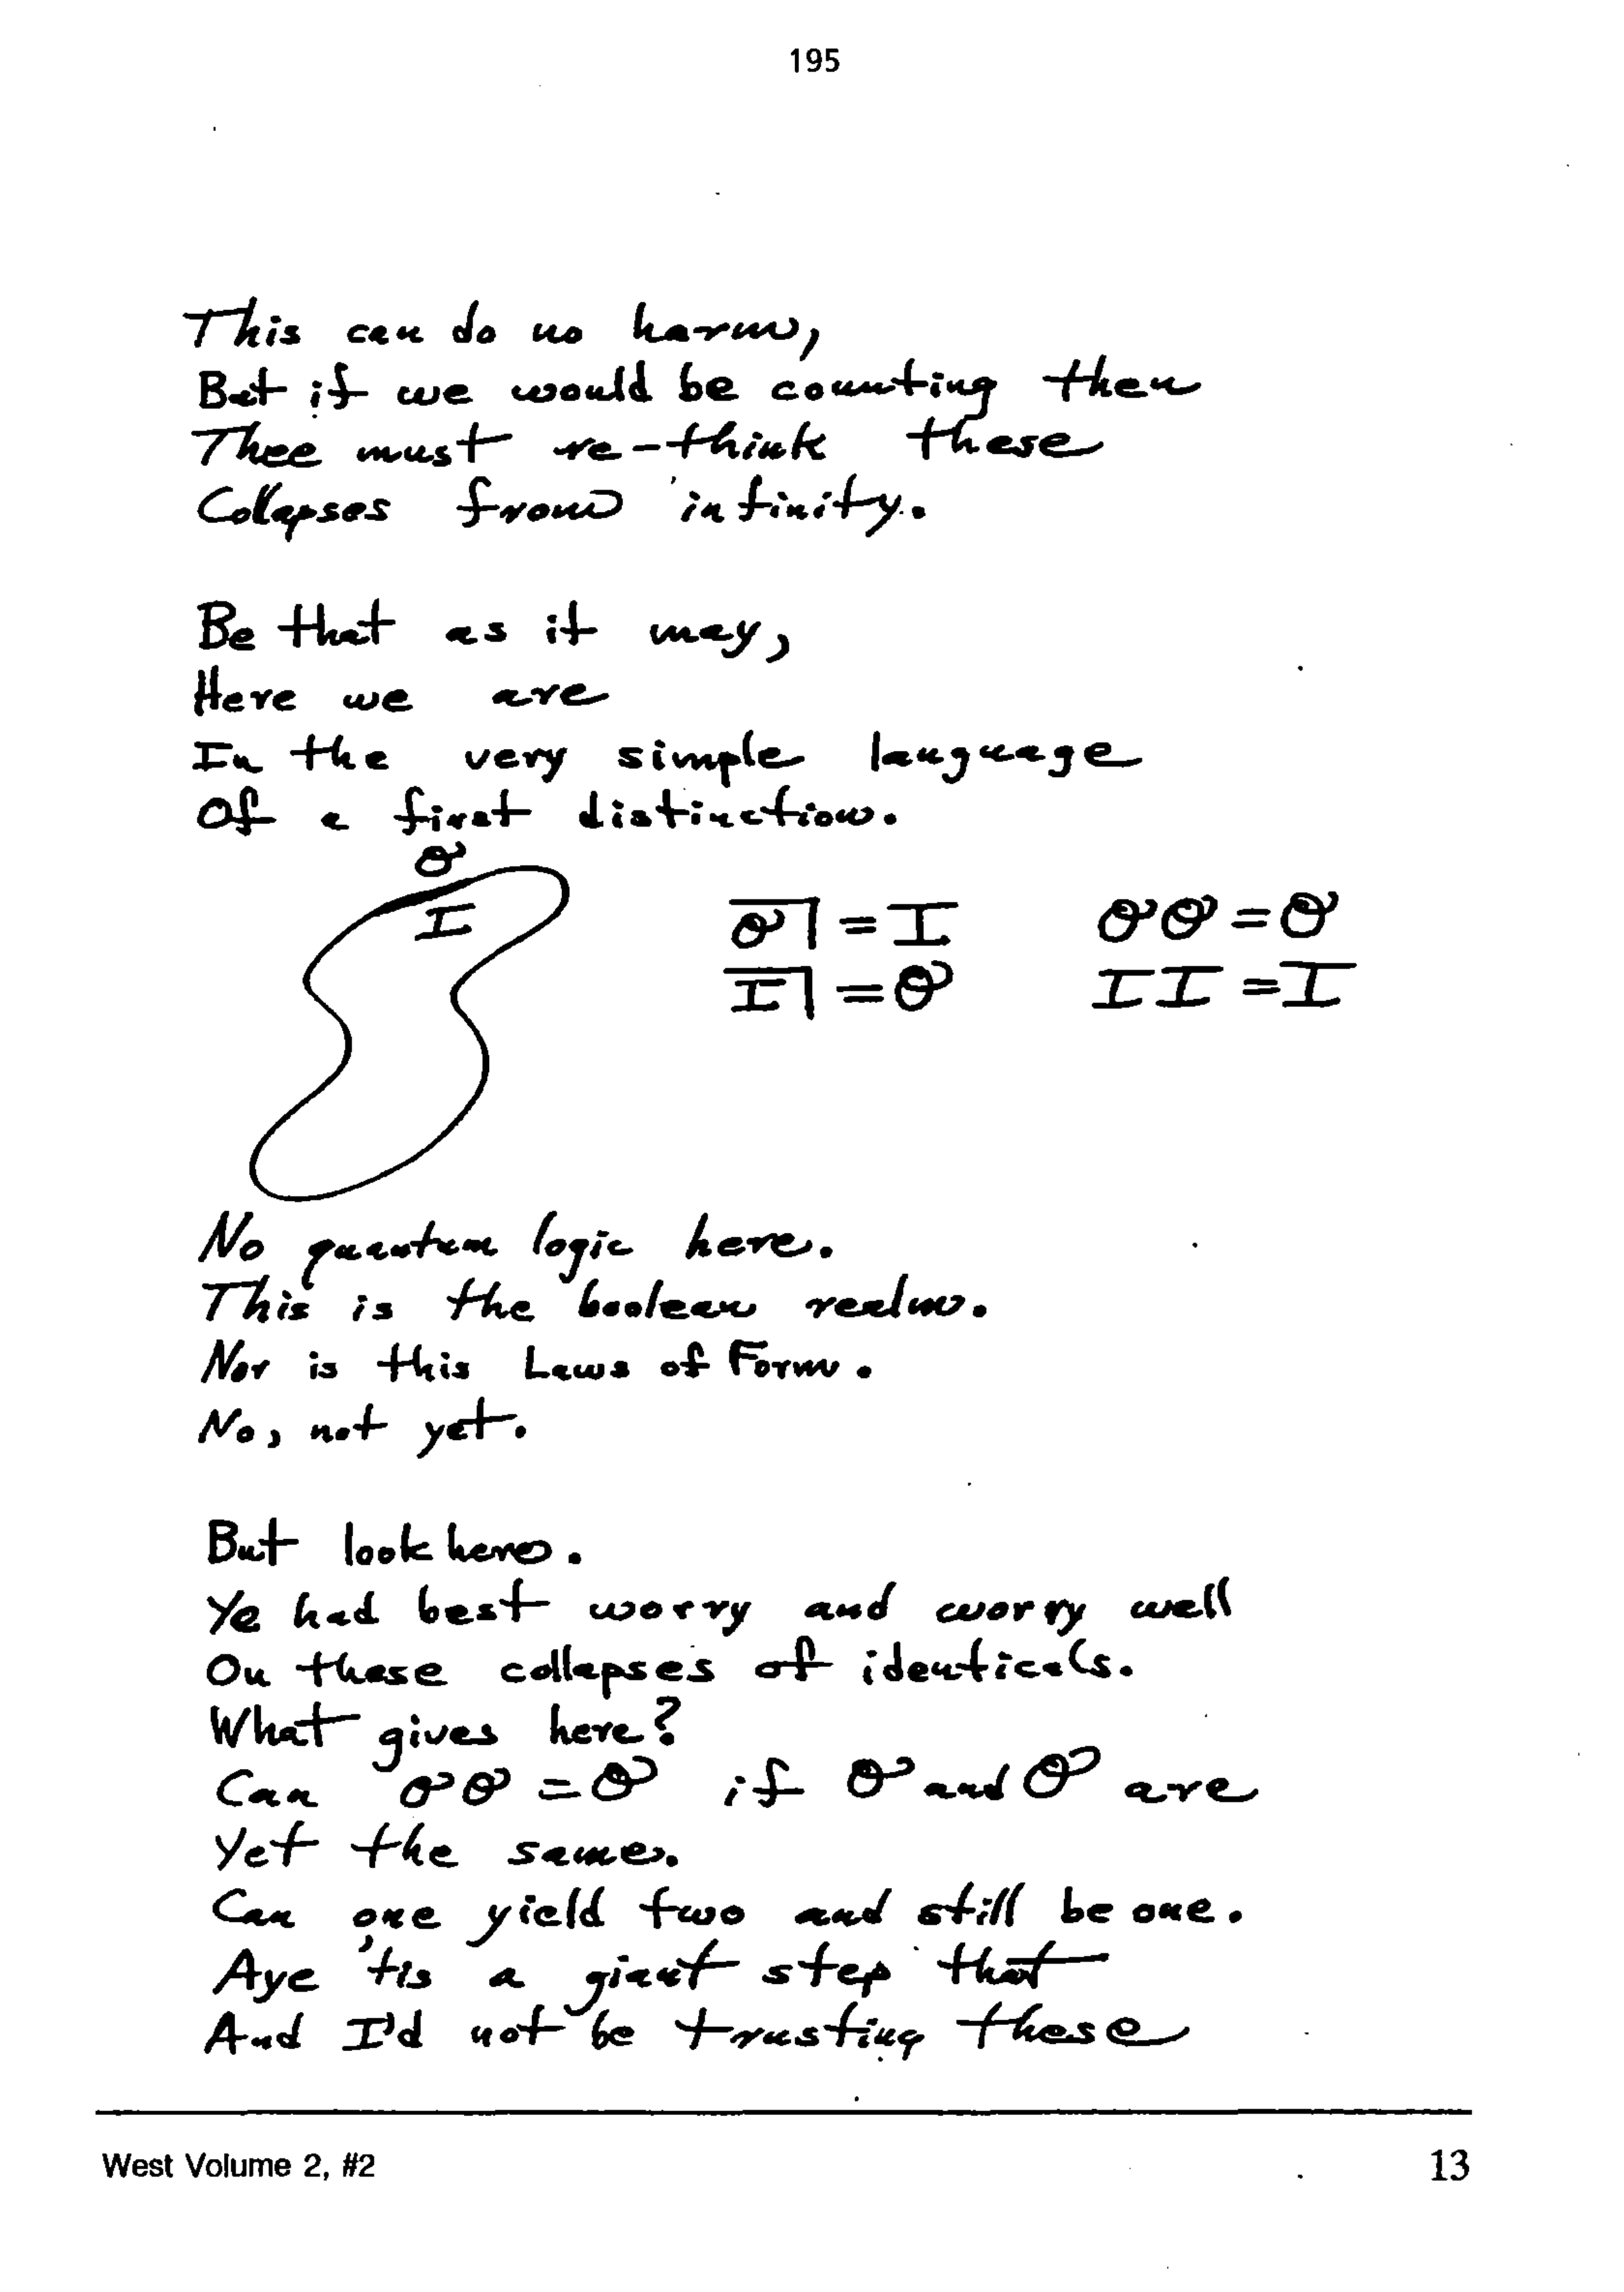 195
This can do no harm,
But if we would be counting then
Thee must re-think these
Collapses from infinity.
Be that as it may,
Here we are
In the very simple language
Of a first distinction.
O
I
O̅| = I    OO = O
I̅| = O    II = I
No quantum logic here.
This is the boolean realm.
Nor is this Laws of Form.
No, not yet.
But look here.
Ye had best worry and worry well
On these collapses of identicals.
What gives here?
Can OO = O if O and O are
Yet the same.
Can one yield two and still be one.
Aye 'tis a giant step that
And I'd not be trusting these
West Volume 2, #2
13